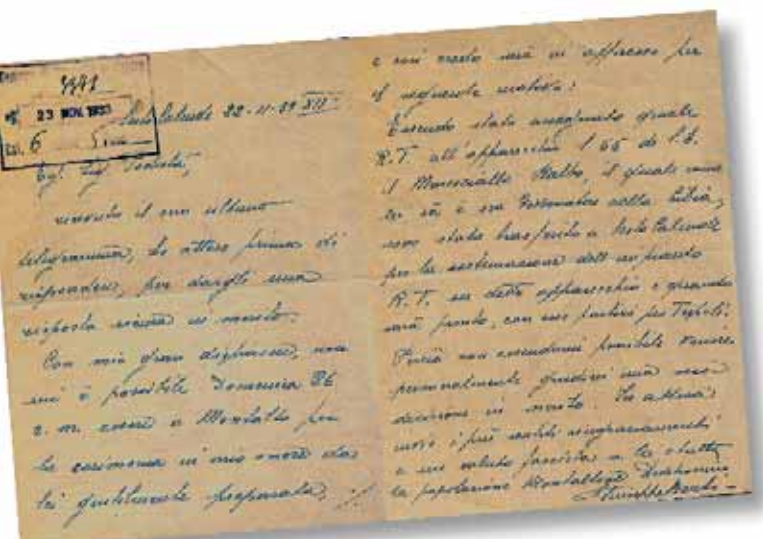 3341
23 NOV. 1933
6
Sesto Calende 22-11-33 XII°
Egr. Sig. Podestà,
ricevuto il suo ultimo
telegramma, ho atteso prima di
rispondere, per dargli una
risposta sicura in merito.
Con mio gran dispiacere, non
mi è possibile Domenica 26
c. m. essere a Montalto per
la cerimonia in mio onore da
lei gentilmente preparata,
e mi credo
il seguente motivo:
Essendo stato assegnato quale
R.T. all'apparecchio S 55 di S.E.
il Maresciallo Balbo, il quale come
lei sa è ora Governatore della Libia,
sono stato trasferito a Sesto Calende
per la sistemazione dell'impianto
R.T. su detto apparecchio e quando
sarà pronto, con esso partirò per Tripoli.
Perciò non essendomi possibile venire
personalmente
decisione in merito.
i più sentiti ringraziamenti
e un saluto fascista a lei e tutta
la popolazione Montaltese
Giuseppe